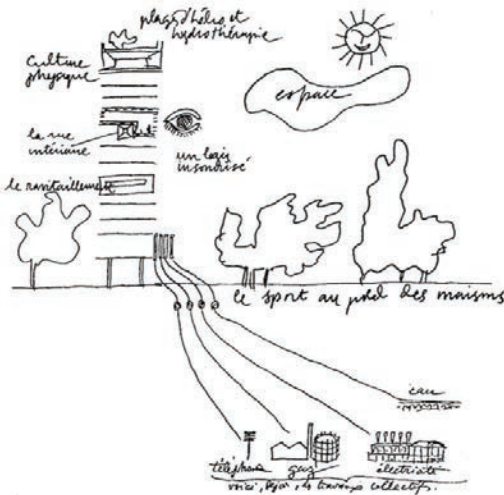 plage d'hélio et
hydrothérapie
culture
physique
espace
la rue
intérieure
un logis
insonorisé
le ravitaillement
le sport au pied des maisons
eau
téléphone
gaz
électricité
voici, les travaux collectifs.